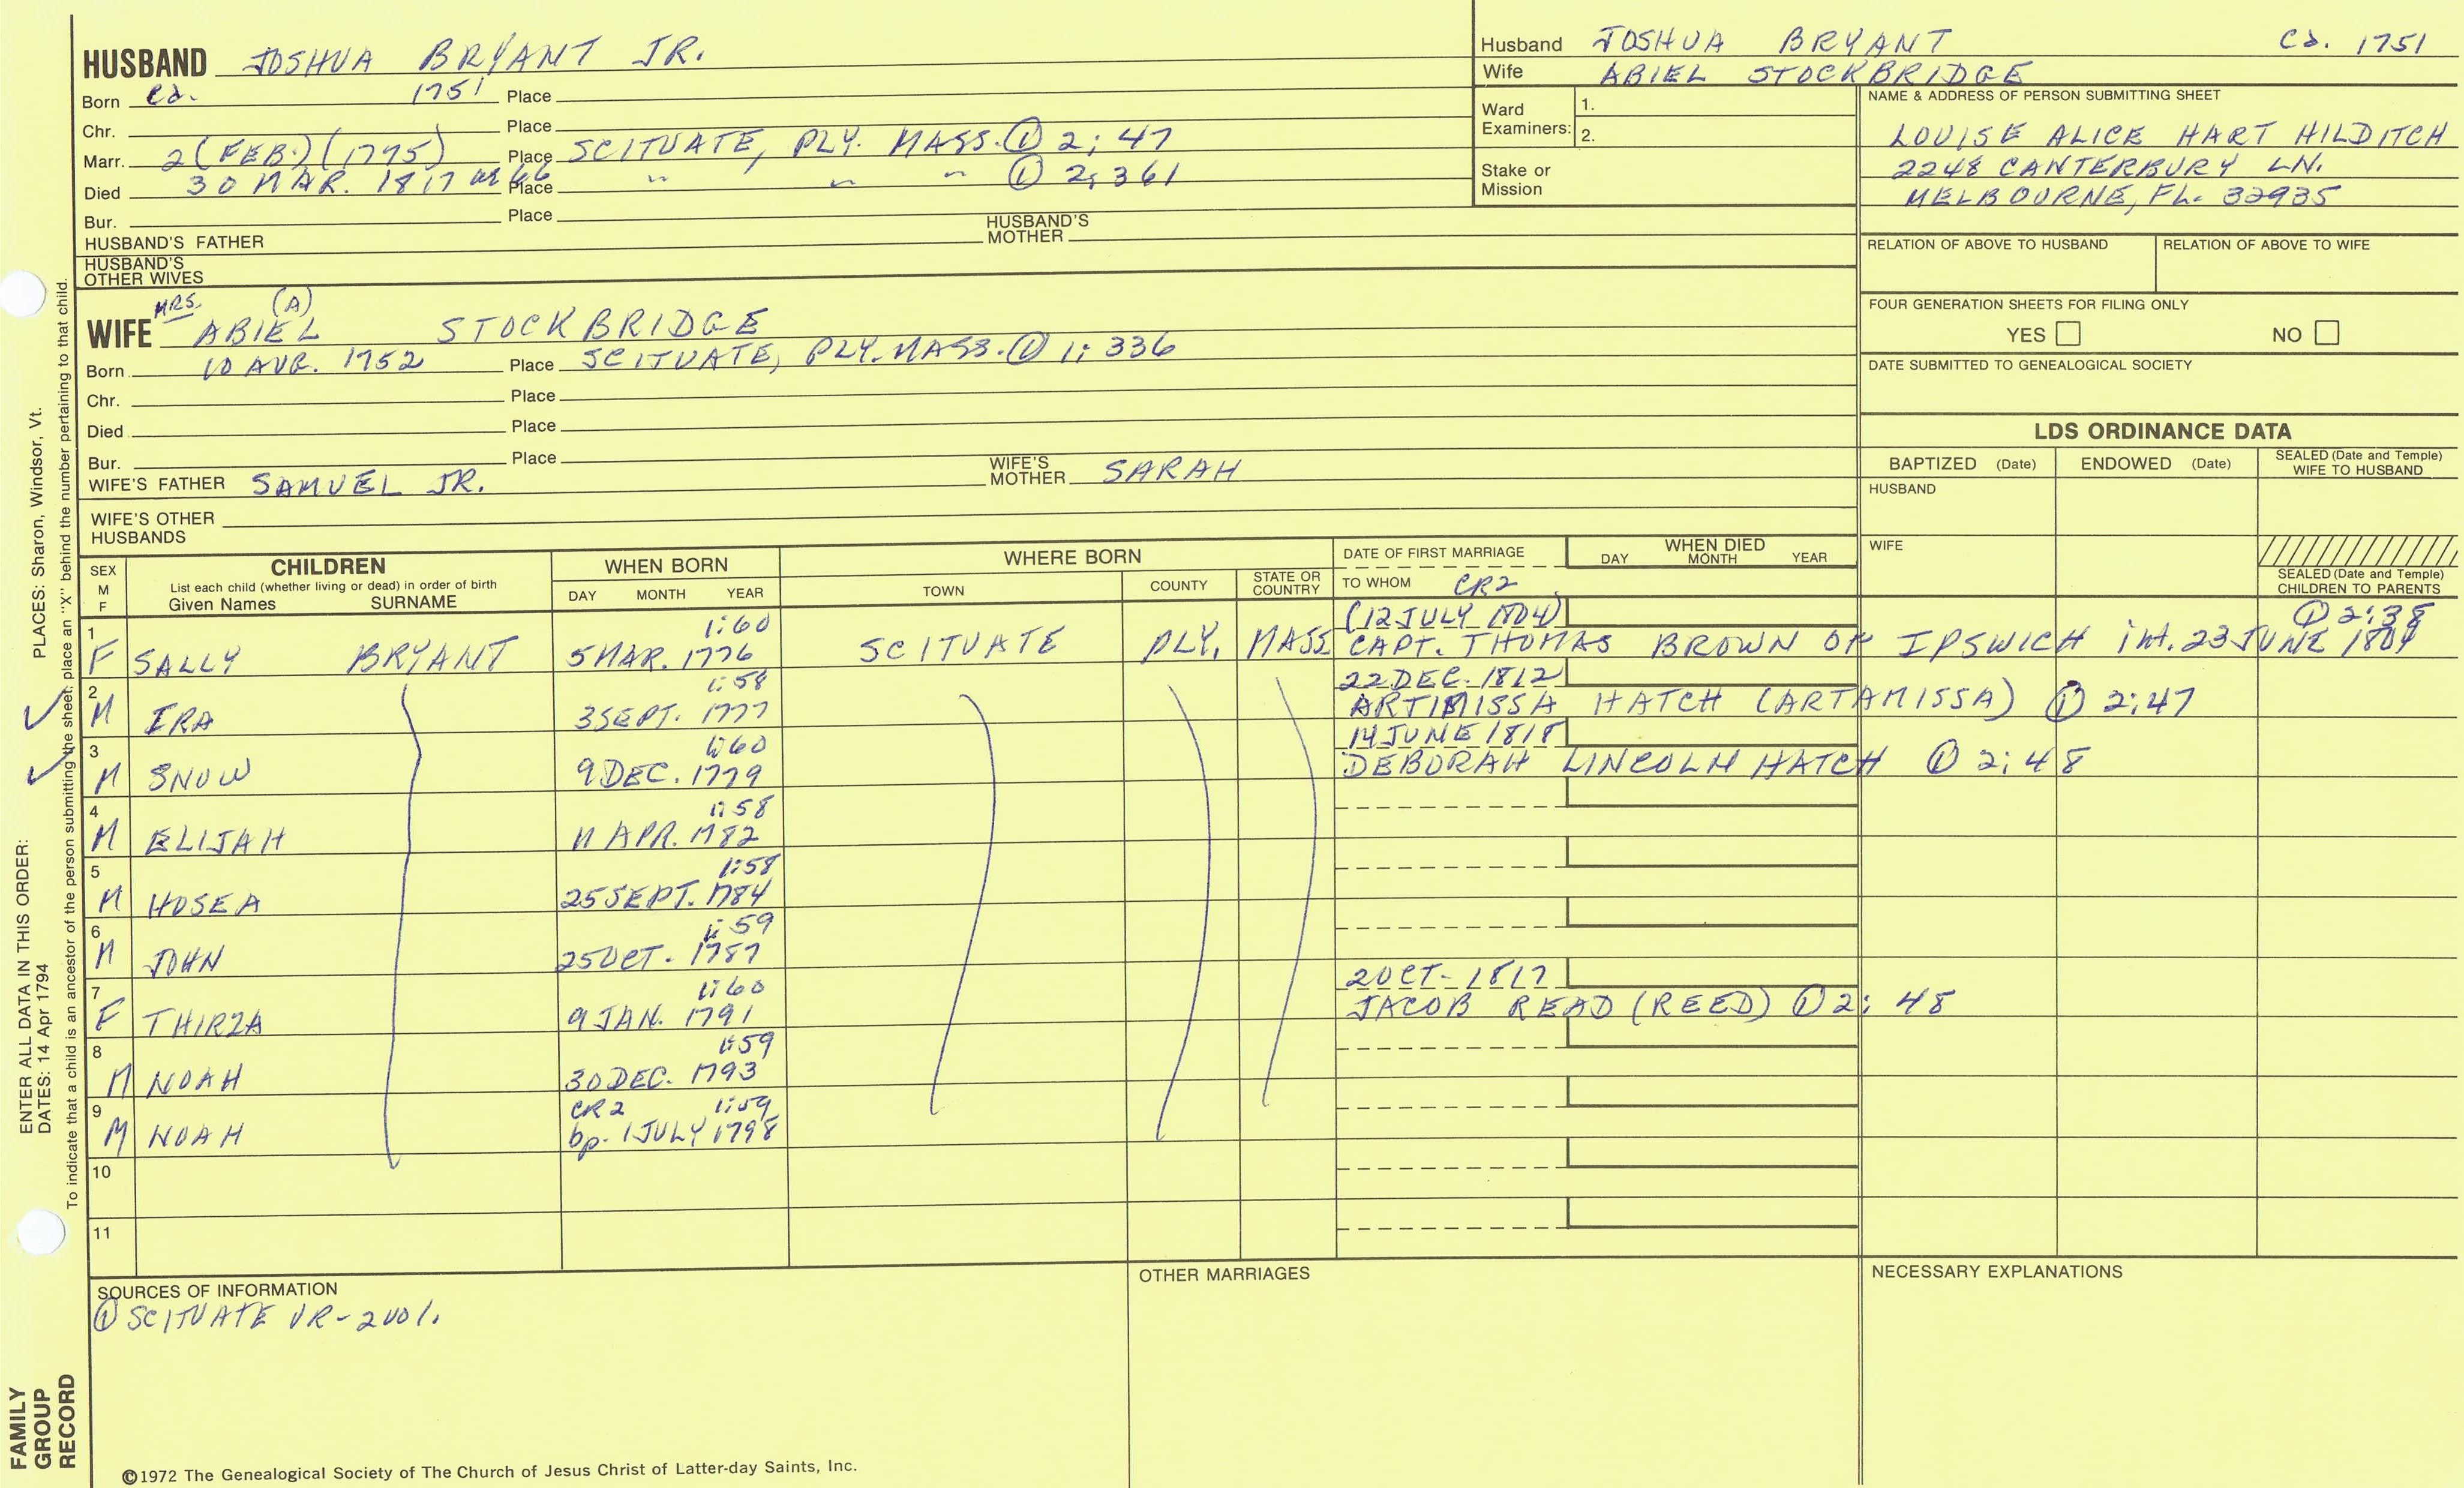 HUSBAND JOSHUA BRYANT JR.
Born ca. 1751 Place
Chr. Place
Marr. 2 (FEB.) (1775) Place SCITUATE, PLY. MASS. ① 2:47
Died 30 MAR. 1817 ae 66 Place " " " ① 2:361
Bur. Place
HUSBAND'S FATHER HUSBAND'S MOTHER
HUSBAND'S OTHER WIVES
MRS. (A)
WIFE ABIEL STOCKBRIDGE
Born 10 AUG. 1752 Place SCITUATE, PLY. MASS. ① 1:336
Chr. Place
Died Place
Bur. Place
WIFE'S FATHER SAMUEL JR. WIFE'S MOTHER SARAH
WIFE'S OTHER HUSBANDS
Husband JOSHUA BRYANT ca. 1751
Wife ABIEL STOCKBRIDGE
Ward Examiners: 1.
2.
Stake or Mission
NAME & ADDRESS OF PERSON SUBMITTING SHEET
LOUISE ALICE HART HILDITCH
2248 CANTERBURY LN.
MELBOURNE, FL. 32935
RELATION OF ABOVE TO HUSBAND RELATION OF ABOVE TO WIFE
FOUR GENERATION SHEETS FOR FILING ONLY
YES NO
DATE SUBMITTED TO GENEALOGICAL SOCIETY
LDS ORDINANCE DATA
BAPTIZED (Date) ENDOWED (Date) SEALED (Date and Temple) WIFE TO HUSBAND
HUSBAND
WIFE
SEALED (Date and Temple) CHILDREN TO PARENTS
SEX M F
CHILDREN
List each child (whether living or dead) in order of birth
Given Names SURNAME
WHEN BORN
DAY MONTH YEAR
WHERE BORN
TOWN COUNTY STATE OR COUNTRY
DATE OF FIRST MARRIAGE
TO WHOM CR2
WHEN DIED
DAY MONTH YEAR
1 1:60 (12 JULY 1804) ① 2:38
F SALLY BRYANT 5 MAR. 1776 SCITUATE PLY. MASS CAPT. THOMAS BROWN OF IPSWICH int. 23 JUNE 1804
2 1:58 22 DEC. 1812
M IRA 3 SEPT. 1777 ARTIMISSA HATCH (ARTAMISSA) ① 2:47
3 1:60 14 JUNE 1818
M SNOW 9 DEC. 1779 DEBORAH LINCOLN HATCH ① 2:48
4 1:58
M ELIJAH 11 APR. 1782
5 1:58
M HOSEA 25 SEPT. 1784
6 1:59
M JOHN 25 OCT. 1787
7 1:60 2 OCT. 1817
F THIRZA 9 JAN. 1791 JACOB READ (REED) ① 2:48
8 1:59
M NOAH 30 DEC. 1793
9 CR2 1:59
M NOAH bp. 1 JULY 1798
10
11
SOURCES OF INFORMATION
① SCITUATE VR-2 vol.
OTHER MARRIAGES
NECESSARY EXPLANATIONS
©1972 The Genealogical Society of The Church of Jesus Christ of Latter-day Saints, Inc.
FAMILY GROUP RECORD
ENTER ALL DATA IN THIS ORDER:
DATES: 14 Apr 1794 PLACES: Sharon, Windsor, Vt.
To indicate that a child is an ancestor of the person submitting the sheet, place an "X" behind the number pertaining to that child.